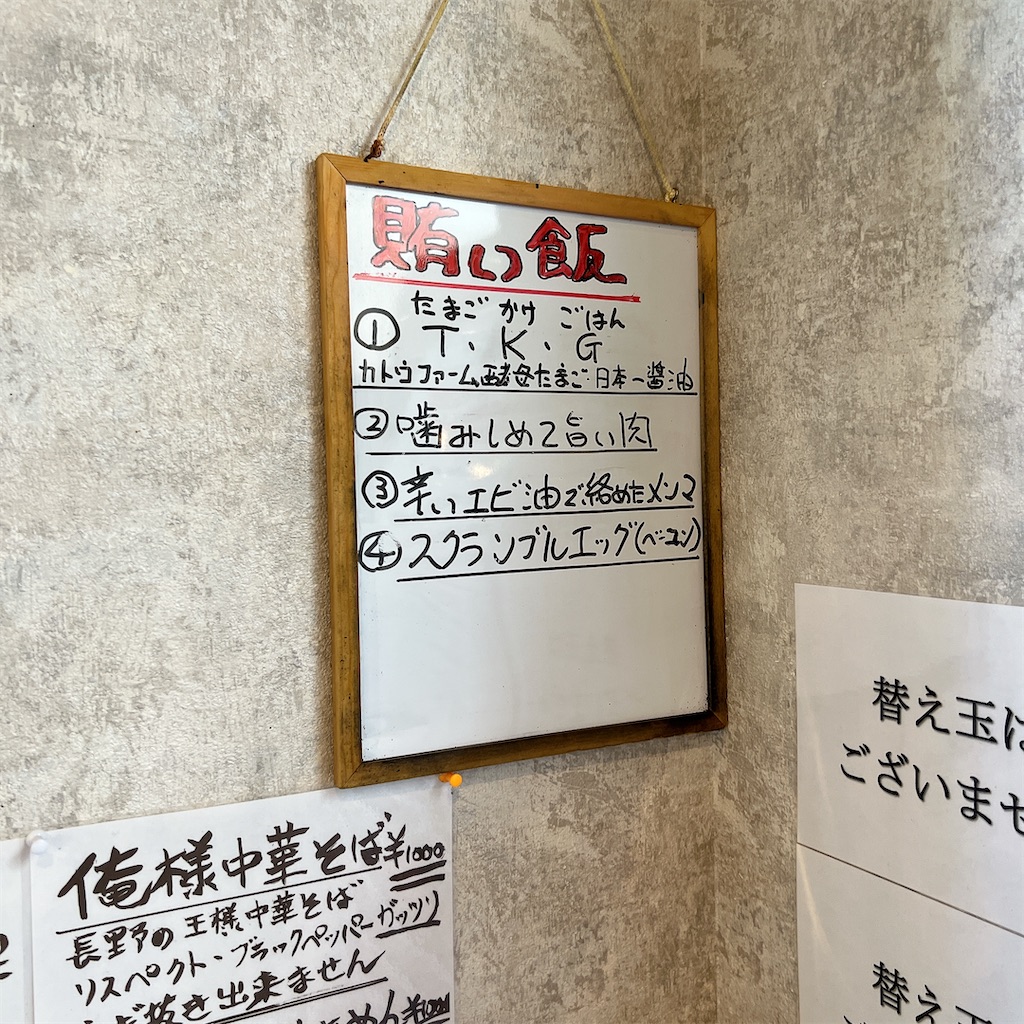 賄い飯
たまご かけ ごはん
① T、K、G
カトウファーム酵母たまご・日本一醤油
②噛みしめて旨い肉
③辛いエビ油で絡めたメンマ
④スクランブルエッグ(ベーコン)
俺様中華そば¥1000
長野の王様中華そば
リスペクト・ブラックペッパーガッツリ
抜き出来ません
めん¥1000
替え玉は
ございませ
替え玉